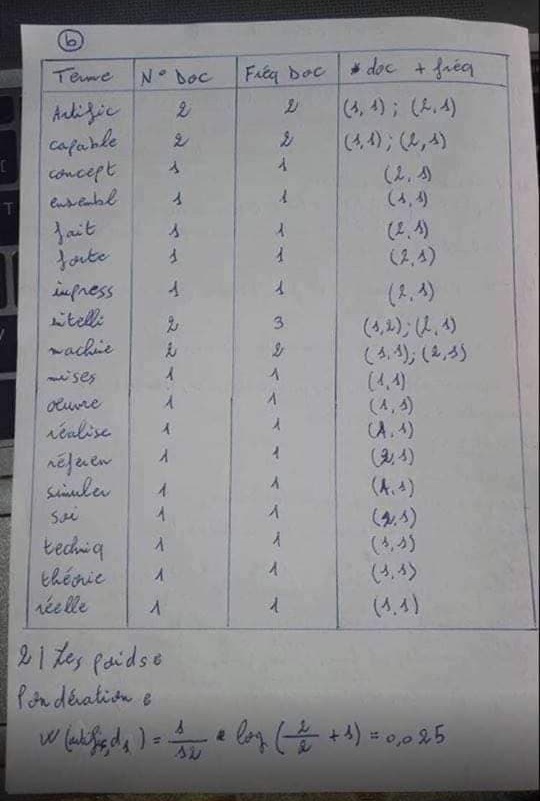 b
Terme N° Doc Fréq Doc * doc + fréq
Artific 2 2 (1,1) ; (2,1)
capable 2 2 (1,1) ; (2,1)
concept 1 1 (2,1)
ensembl 1 1 (1,1)
fait 1 1 (2,1)
forte 1 1 (2,1)
impress 1 1 (2,1)
intelli 2 3 (1,2) ; (2,1)
machine 2 2 (1,1) ; (2,1)
mises 1 1 (1,1)
oeuvre 1 1 (1,1)
réalise 1 1 (1,1)
référen 1 1 (2,1)
simuler 1 1 (1,1)
soi 1 1 (2,1)
techniq 1 1 (1,1)
théorie 1 1 (1,1)
réelle 1 1 (1,1)
2| Les poids :
Pondération :
W (artific, d1) = 1/12 * log (2/2 + 1) = 0,025